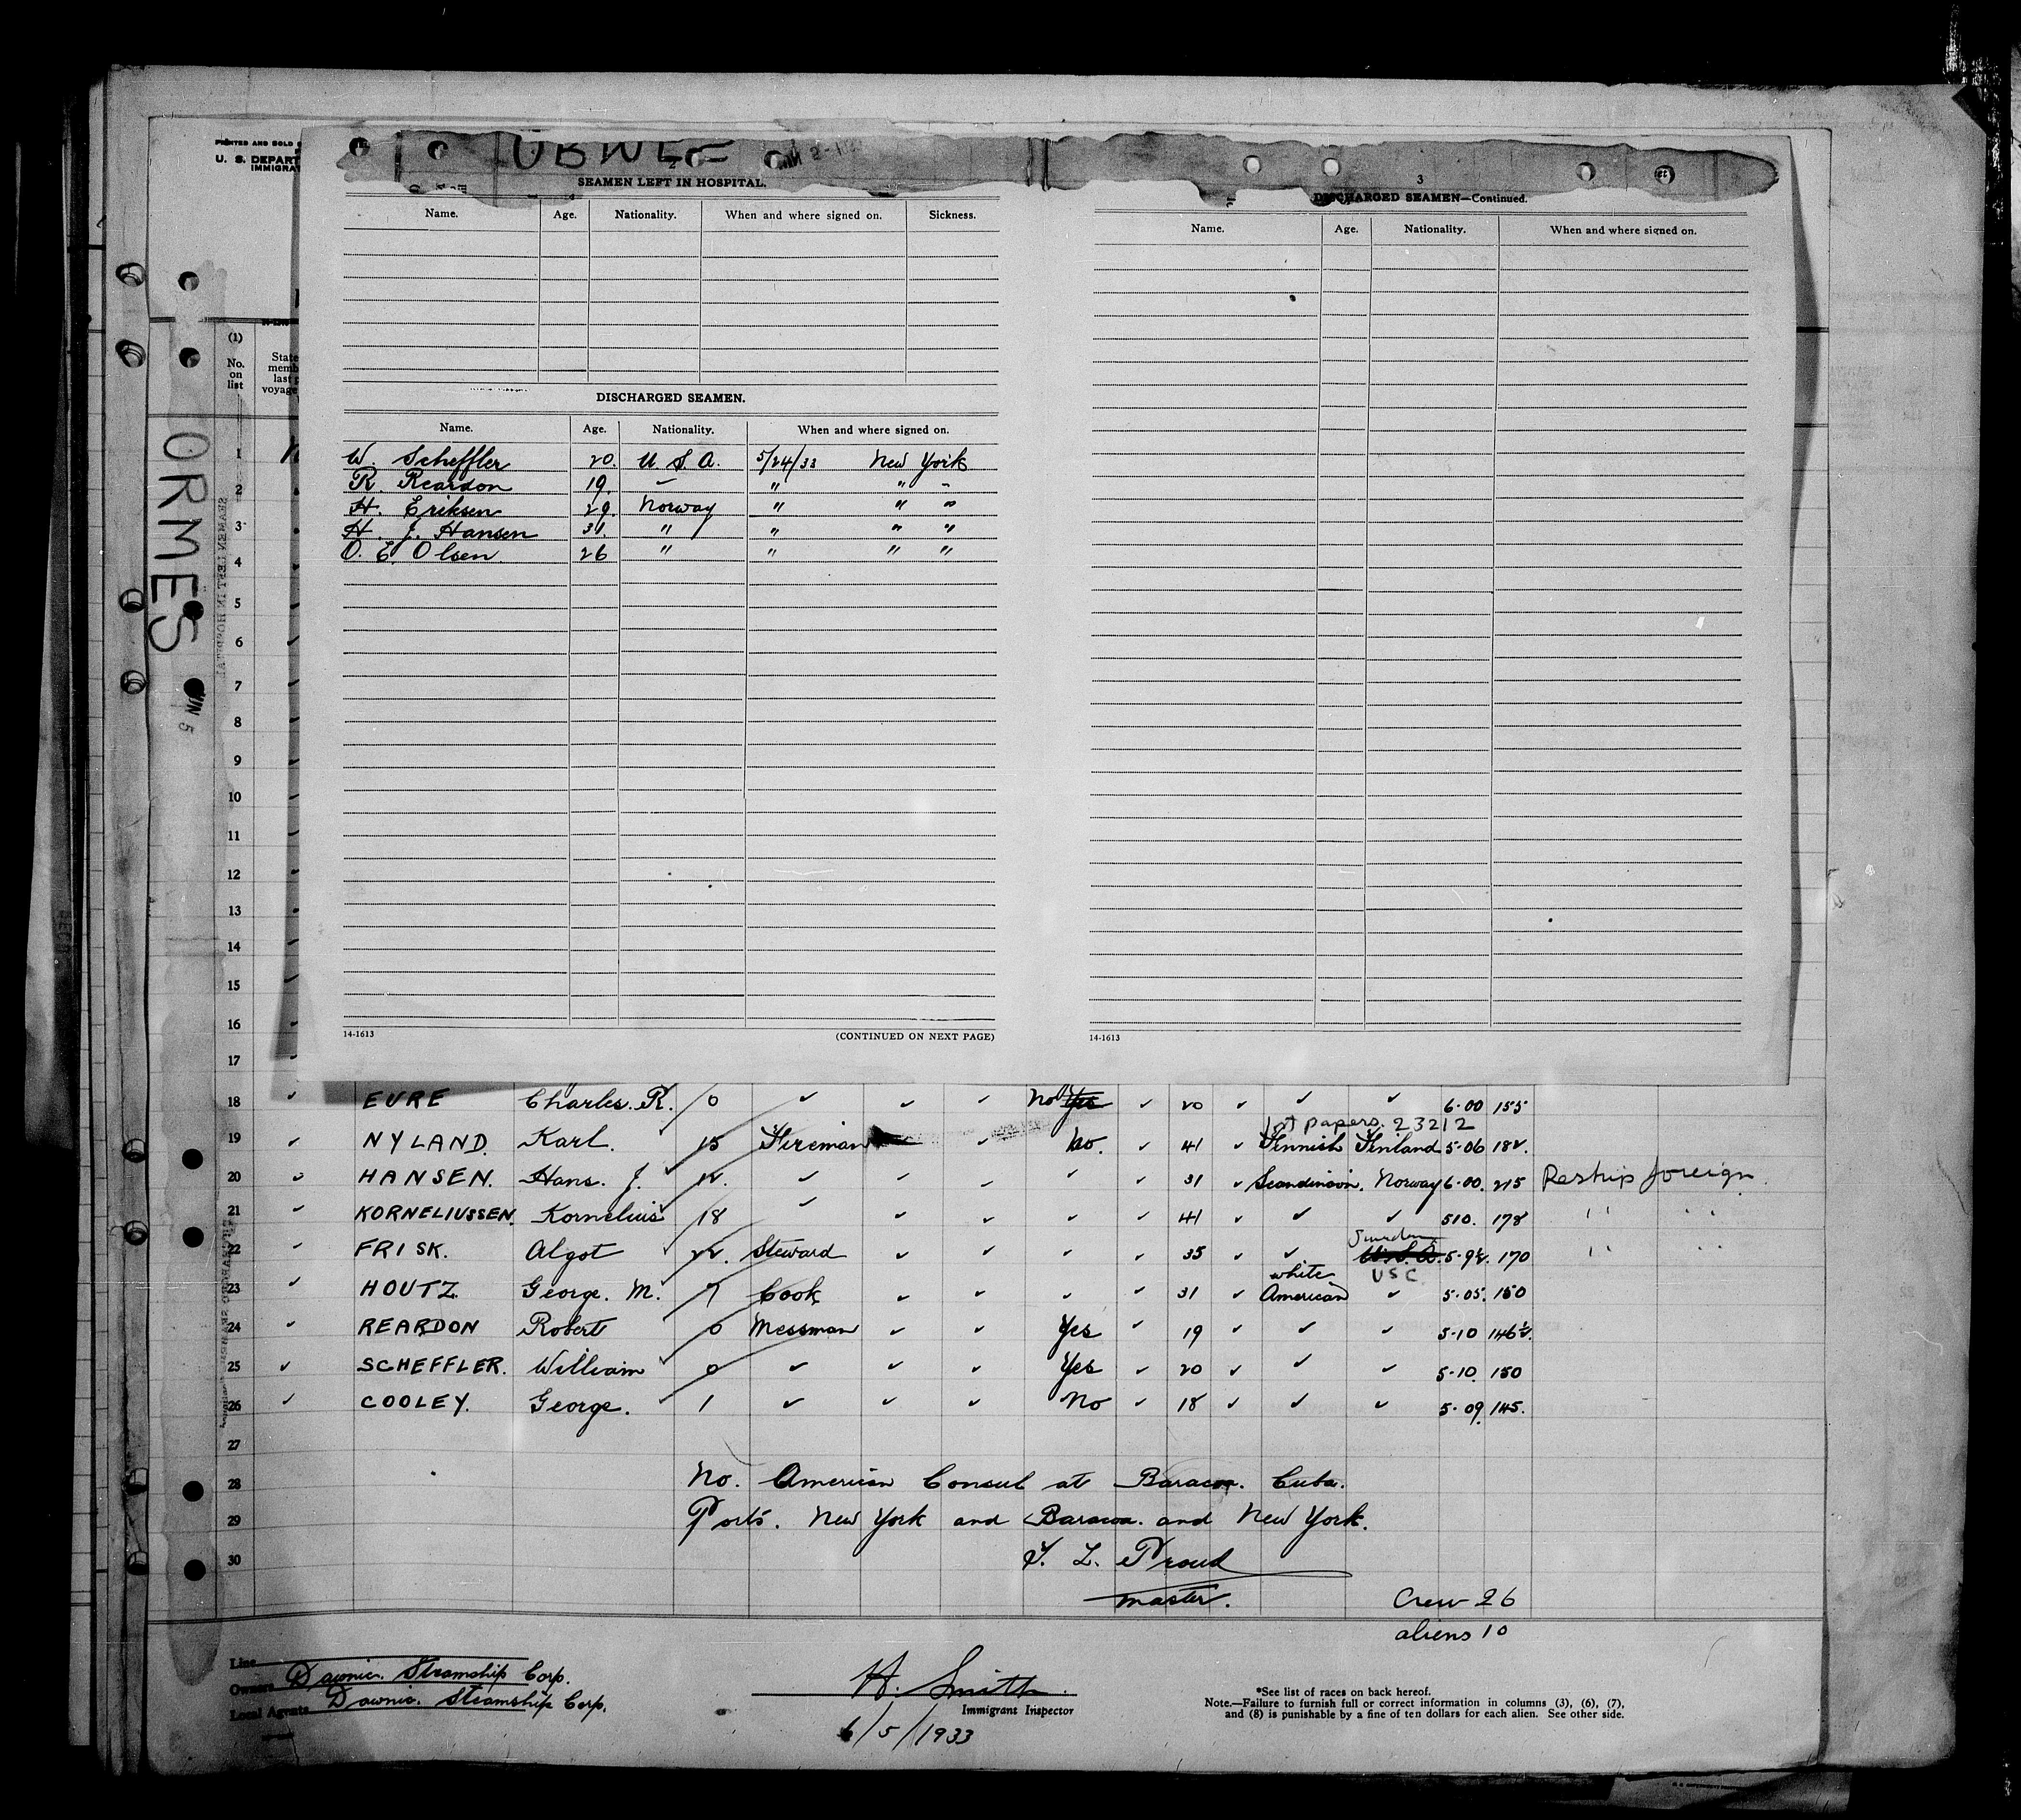 PRINTED AND SOLD
U. S. DEPART
IMMIGRAT
ORMES
JUN 5
2
SEAMEN LEFT IN HOSPITAL.
Name. Age. Nationality. When and where signed on. Sickness.
DISCHARGED SEAMEN.
Name. Age. Nationality. When and where signed on.
W. Scheffler 20. U S A. 5/24/33 New York
R. Reardon 19. " " "
H. Eriksen 29. Norway " " "
H. J. Hansen 31. " " " "
O. E. Olsen. 26 " " " "
14-1613 (CONTINUED ON NEXT PAGE)
3
DISCHARGED SEAMEN—Continued.
Name. Age. Nationality. When and where signed on.
14-1613
(1)
No. on list
State
memb
last p
voyage
1
2
3
4
5
6
7
8
9
10
11
12
13
14
15
16
17
18 ✓ EURE Charles. R. ✓ 0 ✓ ✓ ✓ No Yes ✓ 20 ✓ ✓ ✓ 6.00 155
1st papers. 23212
19 ✓ NYLAND. Karl. 15 Fireman ✓ No. ✓ 41 ✓ Finnish Finland 5.06 182.
20 HANSEN. Hans. J. ✓ 12. ✓ ✓ ✓ ✓ ✓ 31 ✓ Scandinavin. Norway 6.00. 215 Reship foreign.
21 ✓ KORNELIUSSEN. Kornelius ✓ 18 ✓ ✓ ✓ ✓ ✓ 41 ✓ ✓ ✓ 510. 178 " "
Sweden
22 ✓ FRISK. Algot ✓ 22. Steward ✓ ✓ ✓ ✓ 35 ✓ ✓ U.S.A. 5.9½. 170 " "
white USC
23 ✓ HOUTZ. George. M. 7 Cook ✓ ✓ ✓ ✓ 31 ✓ American ✓ 5.05. 150
24 ✓ REARDON Robert ✓ 0 Messman ✓ ✓ Yes ✓ 19 ✓ ✓ ✓ 5.10 146½.
25 ✓ SCHEFFLER. William ✓ 0 ✓ ✓ ✓ Yes ✓ 20 ✓ ✓ ✓ 5.10. 150
26 ✓ COOLEY. George. ✓ 1 ✓ ✓ ✓ No ✓ 18 ✓ ✓ ✓ 5.09. 145.
27
28 No. American Consul at Baracoa. Cuba.
29 Ports. New York and Baracoa. and New York.
30 F. L. Proud
master.
Crew 26
aliens 10
Line
Owners Dawnic. Steamship Corp.
Local Agents Dawnic. Steamship Corp.
H. Smith
Immigrant Inspector
6/5/1933
*See list of races on back hereof.
Note.—Failure to furnish full or correct information in columns (3), (6), (7),
and (8) is punishable by a fine of ten dollars for each alien. See other side.